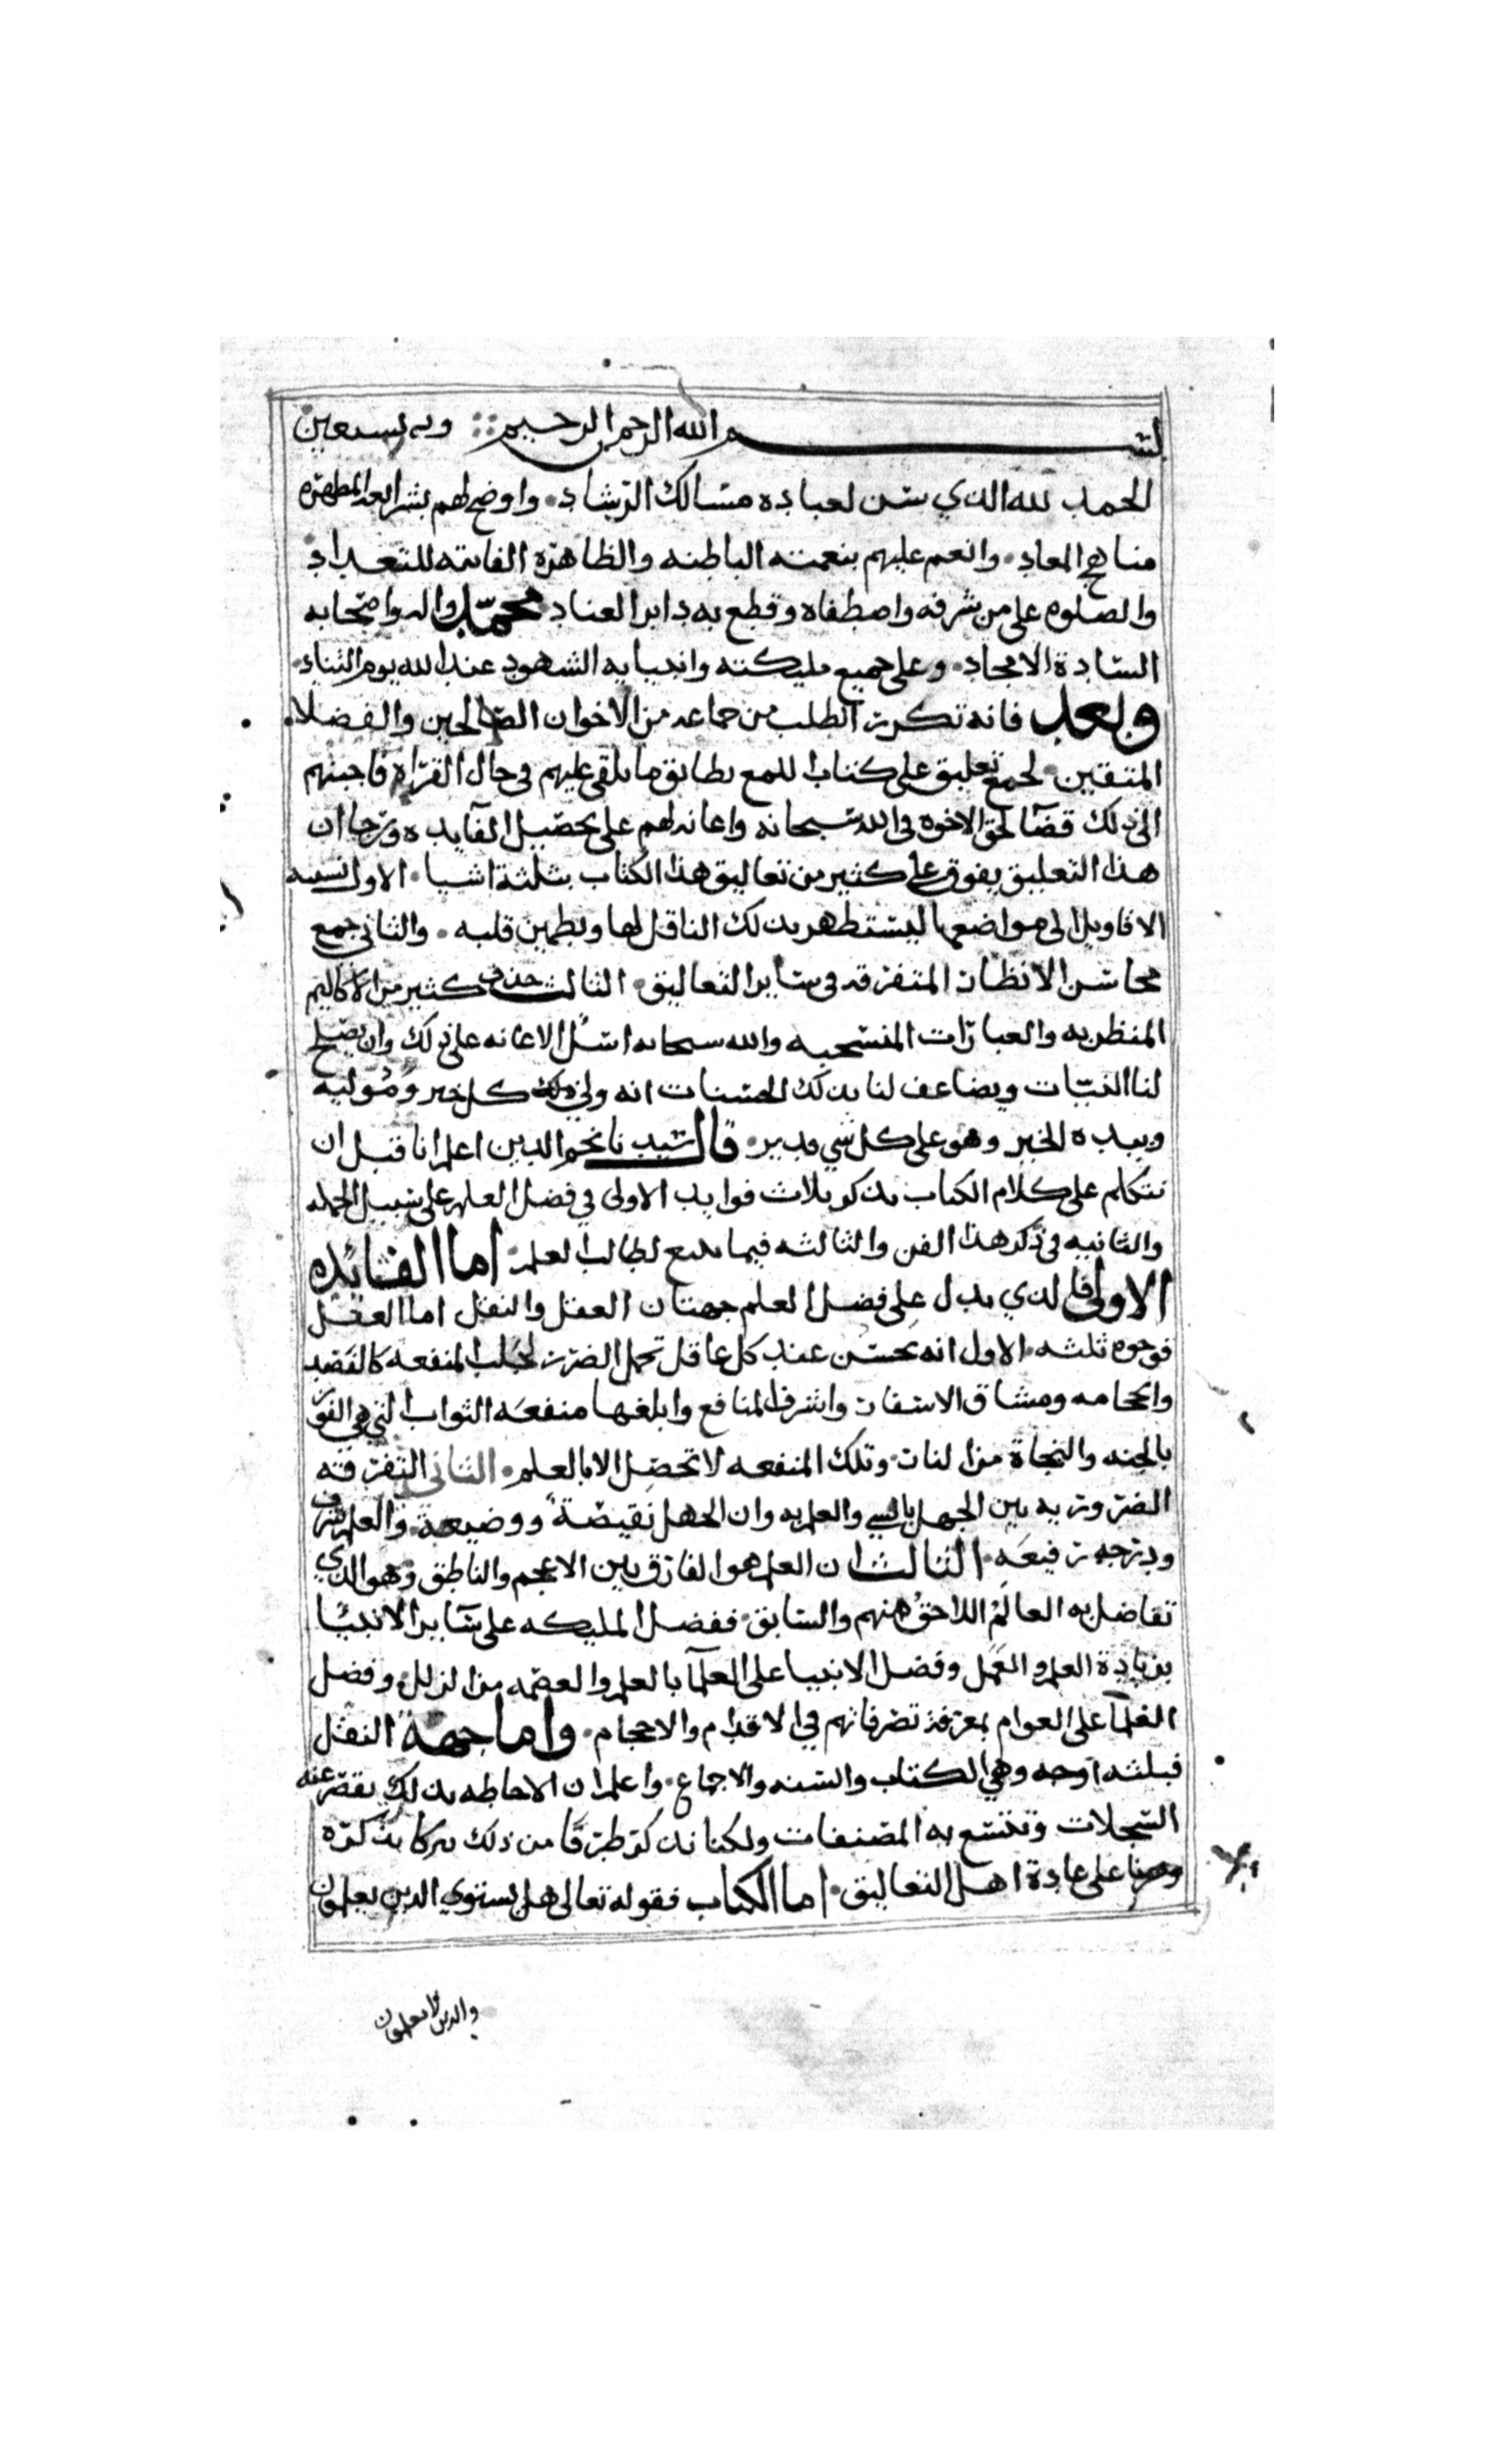 بسم الله الرحمن الرحيم وبه نستعين
الحمد لله الذي سن لعباده مسالك الرشاد. واوضح لهم بشرايعه المطهره
مناهج المعاد. وانعم عليهم بنعمته الباطنه والظاهره الفايته للتعداد
والصلوه على من شرفه واصطفاه وقطع به دابر العناد محمد واله واصحابه
السادة الامجاد. وعلى جميع مليكته وانبيايه الشهود عند الله يوم التناد.
وبعد فانه تكرر الطلب من جماعه من الاخوان الصالحين والفضلا
المتقين. لجمع تعليق على كتاب اللمع يطابق ما يلقى عليهم في حال القراه فاجبتهم
الى ذلك قضآ لحق الاخوه في الله سبحانه واعانه لهم على تحصيل الفايده ورجا ان
هذا التعليق يفوق على كثير من تعاليق هذا الكتاب بثلثة اشيا. الاول نسبه
الاقاويل الى مواضعها ليستظهر بذلك الناقل لها ويطمين قلبه. والثاني جمع
محاسن الانظار المتفرقه في ساير التعاليق. الثالث حذف كثير من الاكاليم
المنظريه والعبارات المنسحبه والله سبحانه اسئل الاعانه على ذلك وان يصلح
لنا النيات ويضاعف لنا بذلك الحسنات انه ولي كل خير ومُوليه
وبيده الخير وهو على كل شي قدير. قال سيدنا نجم الدين اعلم انا قبل ان
نتكلم على كلام الكتاب نذكر ثلاث فوايد الاولى في فضل العلم على سبيل الجمله
والثانيه في ذكر هذا الفن والثالثه فيما ينبغي لطالب العلم. اما الفائده
الاولى فالذي يدل على فضل العلم جهتان العقل والنقل اما العقل
فوجوه ثلثه. الاول انه يحسن عند كل عاقل تحمل الضرر لجلب المنفعه كالفصد
والحجامه ومشاق الاسفار واشرف المنافع وابلغها منفعه الثواب التي هي الفوز
بالجنه والنجاة من النار. وتلك المنفعه لا تحصل الا بالعلم. الثاني التفرقه
الضروريه بين الجهل بالشي والعلم به وان الجهل نقيصةٌ ووضيعة. والعلم شرف
ودرجه رفيعه. الثالث ان العلم هو الفارق بين الاعجم والناطق وهو الذي
تفاضل به العالم اللاحق منهم والسابق. ففضل المليكه على ساير الانبيا
بزيادة العلم والعمل وفضل الانبيا على العلمآ بالعلم والعصمه من الزلل. وفضل
العلمآ على العوام بمعرفة تصرفاتهم في الاقدام والاحجام. واما جهة النقل
فبثلثه اوجه وهي الكتاب والسنه والاجماع. واعلم ان الاحاطه بذلك يقصر عنه
السجلات وتتسع به المصنفات ولكنا نذكر طرفا من ذلك تبركا بذكره
على عادة اهل التعاليق. اما الكتاب فقوله تعالى هل يستوي الذين يعلمون
والذين لا يعلمون